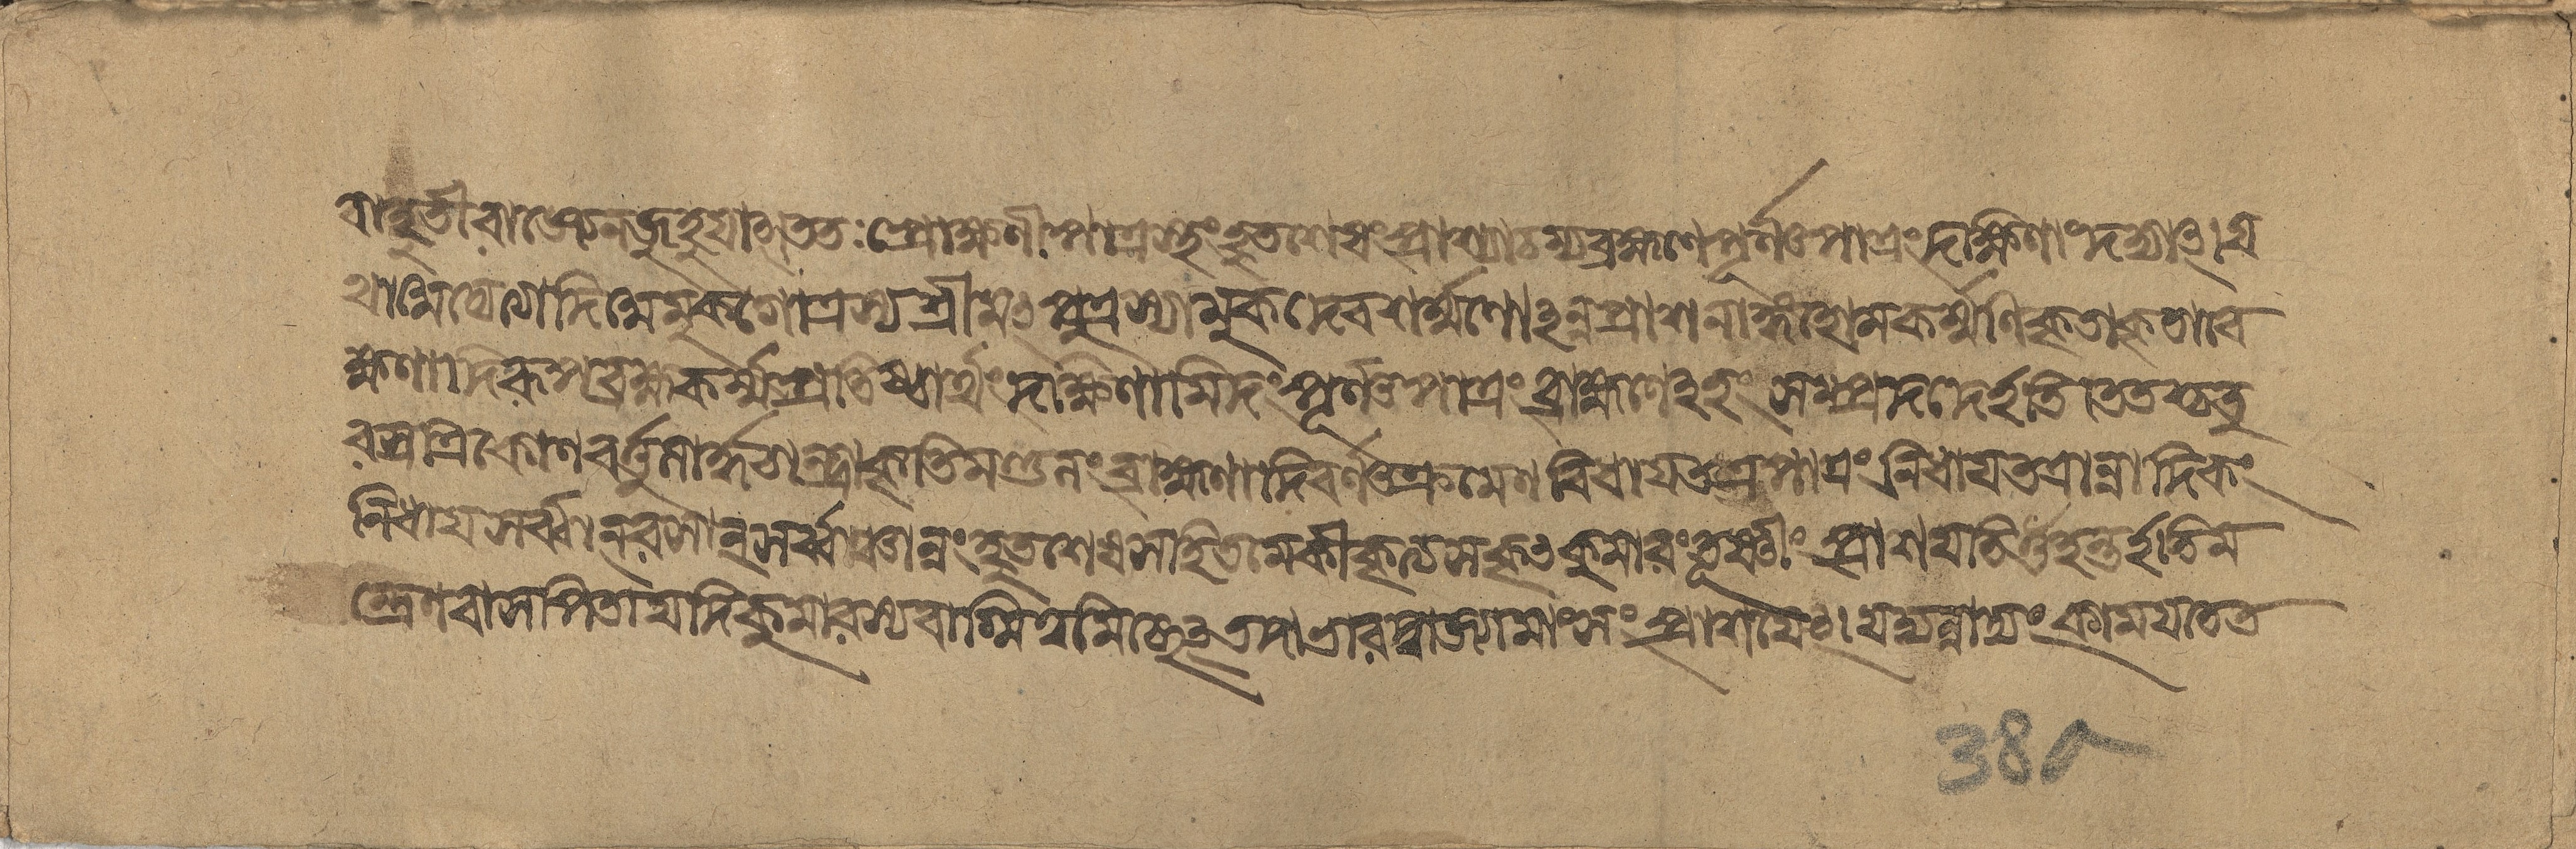 বাহুতীরাজ্যেনজুহুয়াৎ৷ততঃপ্রোক্ষণীপাত্রস্থং হুতশেষংপ্রাশ্যাচম্যব্রহ্মণেপূর্ণপাত্রংদক্ষিণাংদদ্যাৎ৷
দিঅমুকগোত্রস্যশ্রীমৎপুত্রস্যামুকদেবশর্ম্মণোঽন্নপ্রাশনাঙ্গহোমকর্ম্মণিকৃতাকৃতাবে
ক্ষণাদিরূপব্রহ্মকর্ম্মপ্রতিষ্ঠার্থংদক্ষিণামিদংপূর্ণপাত্রংব্রাহ্মণেঽহংসম্প্রদদেইতি৷ততশ্চতু
রস্রত্রিকোণবর্ত্তুলার্দ্ধচন্দ্রাকৃতিমণ্ডলংব্রাহ্মণাদিবর্ণক্রমেণবিধায়তত্রপাত্রংনিধায়তত্রান্নাদিকং
নিধায়সর্ব্বান্‌রসান্‌সর্ব্বমন্নংহুতশেষসহিতমেকীকৃত্যসকৃৎকুমারংতূষ্ণীংপ্রাশয়তি৷হন্তইতিম
ন্ত্রেণবা৷সপিতাযদিকুমারস্যবাগ্মিত্বমিচ্ছেৎতদাভারদ্বাজ্যামাংসংপ্রাশয়েৎ৷যদ্যন্নাদ্যংকাময়তেত
38a